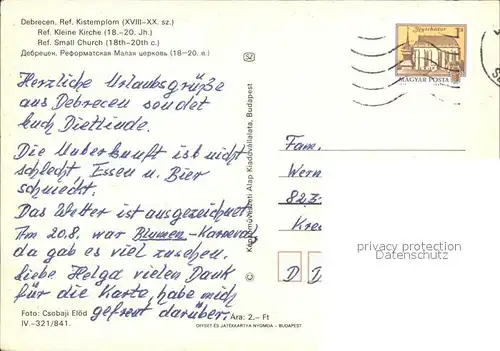 Debrecen. Ref. Kistemplom (XVIII–XX. sz.)
Ref. Kleine Kirche (18.–20. Jh.)
Ref. Small Church (18th–20th c.)
Дебрецен. Реформатская Малая церковь (18–20. в.)
Herzliche Urlaubsgrüße
aus Debrecen sendet
Euch Dietlinde.
Die Unterkunft ist nicht
schlecht. Essen u. Bier
schmeckt.
Das Wetter ist ausgezeichnet
Am 20.8. war Blumen-Karneval
da gab es viel zusehen.
Liebe Helga vielen Dank
für die Karte, habe mich
gefreut darüber.
Foto: Csobaji Előd
IV.–321/841.
Ára: 2.– Ft
OFFSET ÉS JÁTÉKKÁRTYA NYOMDA – BUDAPEST
Képzőművészeti Alap Kiadóvállalata, Budapest
Nyírbátor
MAGYAR POSTA
Fam.
Wern
823
Kre
D D
privacy protection
Datenschutz